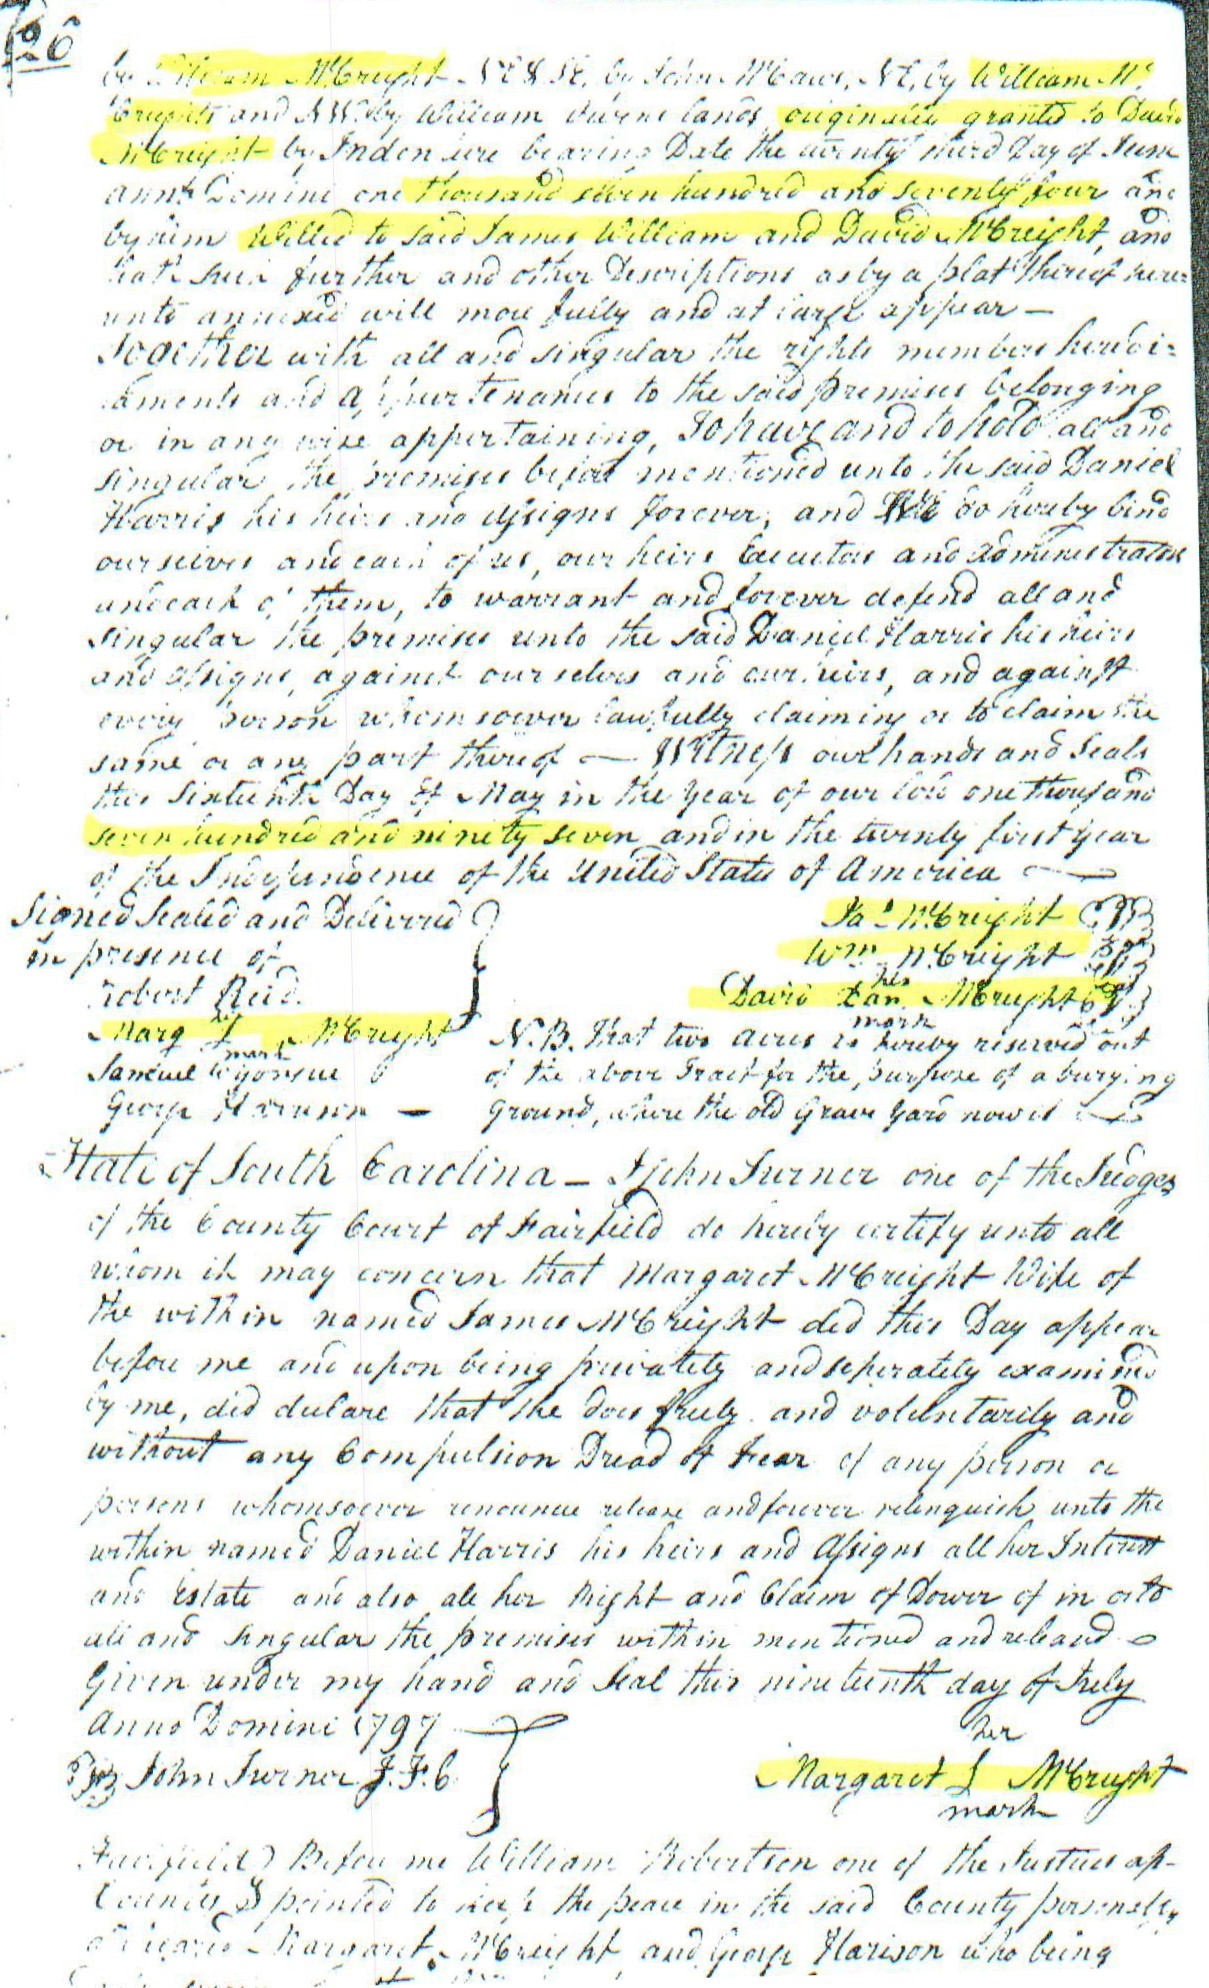 26
by William McCreight N E & S E, by John McCaws, N E, by William Mc
Creights and N W. by William lands, originally granted to David
McCreight by Indenture bearing Date the twenty third Day of June
anno Domini one thousand seven hundred and seventy four and
by him Willed to said James William and David McCreight, and
hath such further and other Descriptions as by a plat thereof here=
unto annexed will more fully and at large appear —
Together with all and singular the rights members heredi=
taments and appurtenances to the said premises belonging
or in any wise appertaining, To have and to hold all and
singular the premises before mentioned unto the said Daniel
Harris his heirs and assigns forever, and We do hereby bind
ourselves and each of us, our heirs Executors and administrators
and each of them, to warrant and forever defend all and
singular the premises unto the said Daniel Harris his heirs
and assigns, against ourselves and our heirs, and against
every person whomsoever lawfully claiming or to claim the
same or any part thereof — Witness our hands and Seals
this Sixteenth Day of May in the Year of our lord one thousand
seven hundred and ninety seven and in the twenty first year
of the Independence of the United States of America —
Signed Sealed and Delivered
in presence of
Robert Reid.
Marg her mark McCreight
Samuel
George Harrison —
Jas. McCreight
Wm McCreight
David his mark McCreight
N.B. That two acres is hereby reserved out
of the above Tract for the purpose of a burying
Ground, where the old Grave Yard now is
State of South Carolina — I John Turner one of the Judges
of the County Court of Fairfield do hereby certify unto all
whom it may concern that Margaret McCreight Wife of
the within named James McCreight did this Day appear
before me and upon being privately and seperately examined
by me, did declare that she does freely and voluntarily and
without any Compulsion Dread or Fear of any person or
persons whomsoever renounce release and forever relinquish unto the
within named Daniel Harris his heirs and Assigns all her Interest
and Estate and also all her Right and Claim of Dower of in or to
all and singular the premises within mentioned and released
Given under my hand and Seal this nineteenth day of July
Anno Domini 1797
John Turner J. F. C
her
Margaret McCreight
mark
Fairfield } Before me William Robertson one of the Justices ap-
County } pointed to keep the peace in the said County personally
appeared Margaret McCreight and George Harison who being